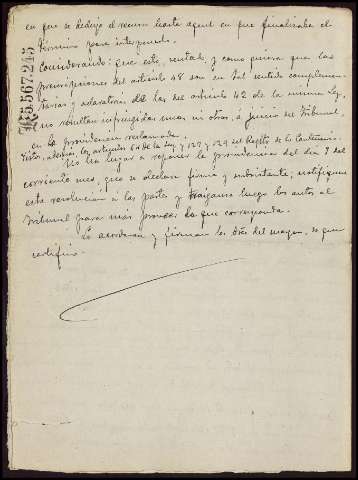 en que se dedujo el recurso hasta aquel en que finalizaba el
término para interponerlo.
Considerando: que este, sentado, y como quiera que las
prescripciones del artículo 48 son en tal sentido complemen-
tarias y aclaratorias de las del artículo 42 de la misma Ley,
no resultan infringidas unas ni otras, a juicio del Tribunal,
en la providencia reclamada.
Vistos, además, los artículos de la Ley y 127 y 129 del Regto de lo Contencioso.
No ha lugar a reponer la providencia del día 7 del
corriente mes, que se declara firme y subsistente; notifíquese
esta resolución a las partes y tráiganse luego los autos al
Tribunal para más proveer lo que corresponda.
Lo acordaron y firman los Sres del margen, de que
certifico.
K5.567.245